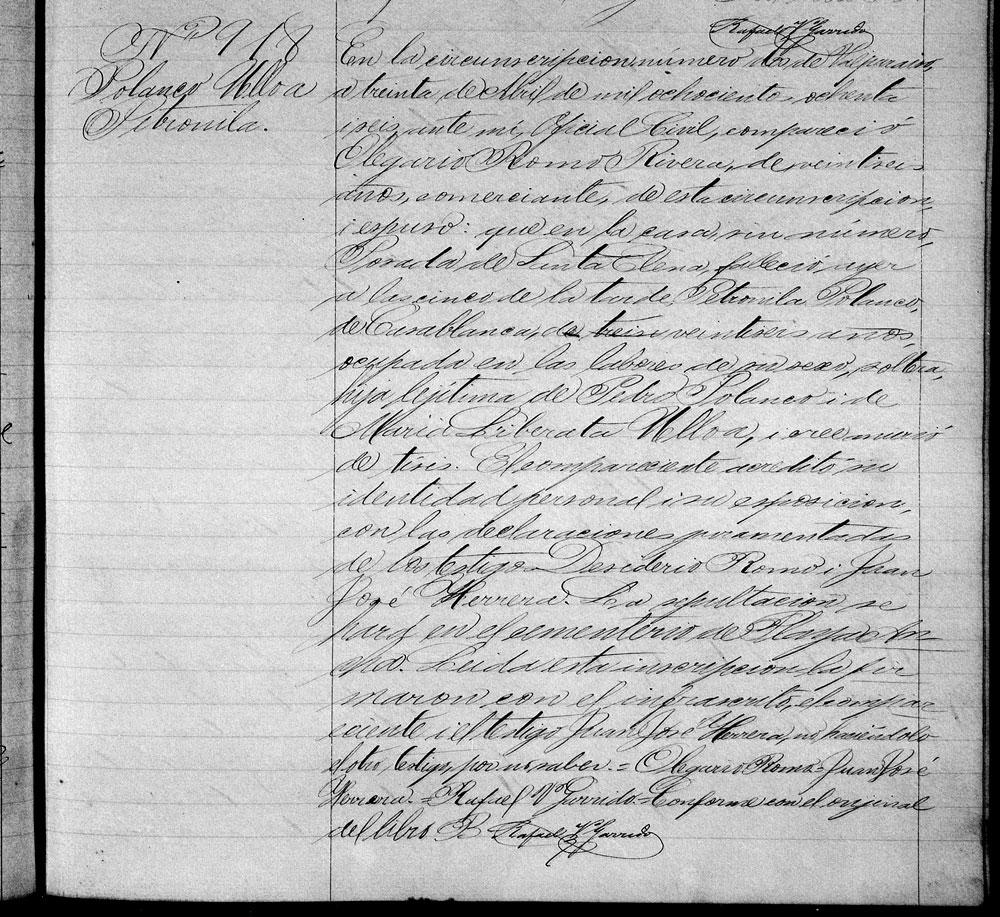 Rafael 2º Garrido
Nº 918
Polanco Ulloa
Petronila.
En la circunscripcion número dos de Valparaiso,
a treinta de Abril de mil ochocientos ochenta
i seis, ante mí, Oficial Civil, compareció
Olegario Romo Rivera, de veintiseis
años, comerciante, de esta circunscripcion,
i espuso: que en la casa sin número,
Posada de Santa Elena, falleció, ayer
a las cinco de la tarde, Petronila Polanco,
de Casablanca, de treis veintiseis años,
ocupada en las labores de su sexo, soltera,
hija lejítima de Pedro Polanco i de
Maria Liberata Ulloa, i cree murió
de tisis. El compareciente acreditó su
identidad personal i su esposicion,
con las declaraciones juramentadas
de los testigos Desiderio Romo i Juan
José Herrera. La sepultacion se
hará en el cementerio de Playa An-
cha. Leida esta inscripcion, la fir
maron con el infrascrito, el compar-
eciente i el testigo Juan José Herrera, no haciéndolo
el otro testigo, por no saber.= Olegario Romo= Juan José
Herrera.= Rafael 2º Garrido.= Conforme con el orijinal
del libro Rafael 2º Garrido